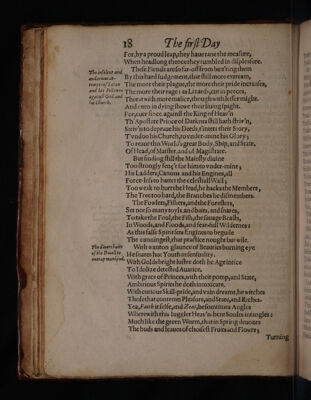 18 The first Day
For, by a proud leap, they have tane the measure,
When head long thence they tumbled in displeasure.
These Fiends are so far-off from bett'ring them
By this hard Judgement, that still more extream,
The more their plague, the more their pride increases,
The more their rage: as Lizards, cut in peeces,
Threat with more malice, though with lesser might.
And even in dying shew their living spight.
For, ever since against the King of Heav'n
Th' Apostate Prince of Darknes still hath striv'n,
Striv'n to deprave his Deeds, t'interr their Story,
T'undoo his Church, to under-mine his Glory;
To reave this World's great Body, Ship, and State,
Of Head, of Master, and of Magistrate.
But finding still the Majesty divine
Too strongly fenc't for him to under-mine;
His Ladders, Canons and his Engines, all
Force-less to batter the celestiall Wall;
Too weak to hurt the Head, he hacks the Members,
The Tree too hard, the Branches he dismembers.
The Fowlers, Fishers, and the Foresters,
Set not so many toyls, and baits, and snares,
To take the Foul, the Fish, the savage Beasts,
In Woods, and Floods, and fear-full Wilderness:
As this false Spirit sets Engines to beguile
The cunningest, that practice nought but wile.
With wanton glaunce of Beauties burning eye
He snares hot Youth in sensuality.
With Golds bright lustre doth he Age intice
To Idolize detested Avarice.
With grace of Princes, with their pomp, and State,
Ambitious Spirits he doth intoxicate.
With curious Skill-pride, and vain dreams, he witches
Those that contemn Pleasure, and State, and Riches.
Yea, Faith it selfe, and Zeal, be sometimes Angles
Wherewith this Juggler Heav'n-bent Souls intangles:
Much like the green Worm, that in Spring devours
The buds and leaves of choisest Fruits and Flowrs;
Turning
The insolent and
audacious at-
tempts of Satan
and his Fellowes
against God and
his Church.
The divers baits
of the Devill to
intrap mankinde.